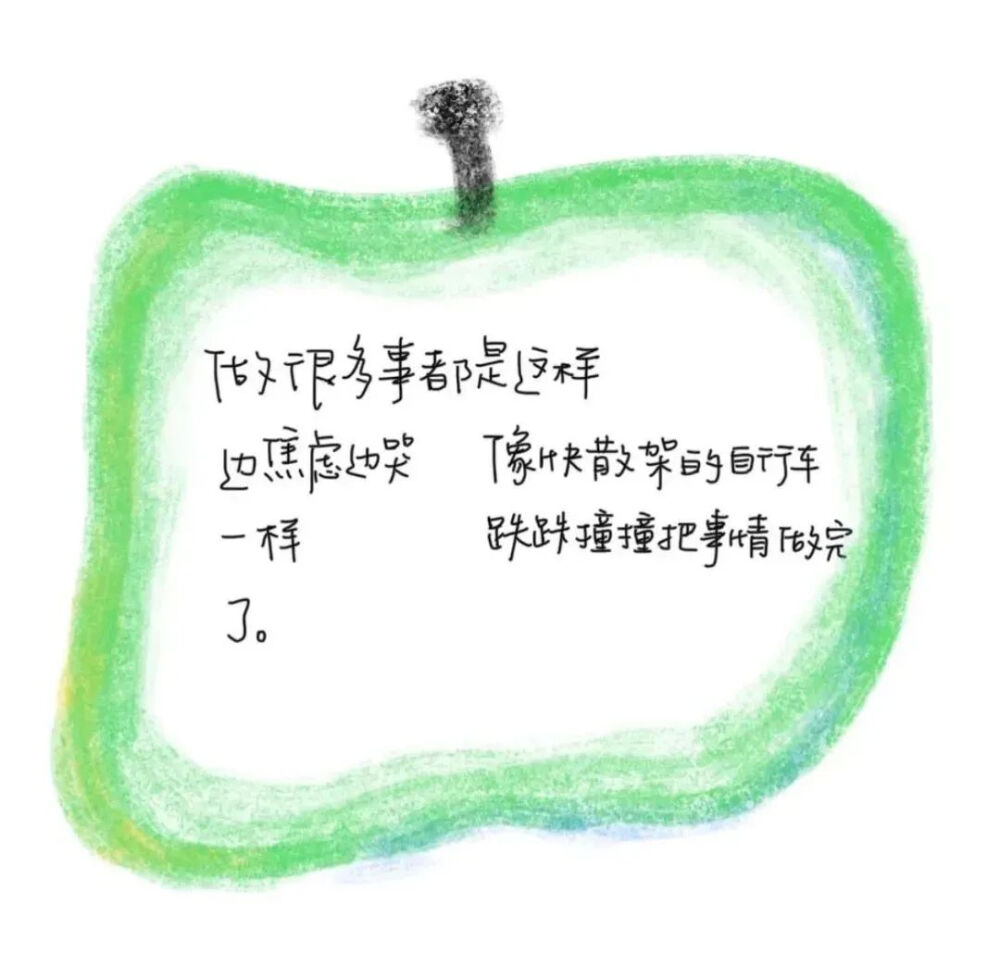 做很多事都是这样
边焦虑边哭 像快散架的自行车
一样 跌跌撞撞把事情做完
了。